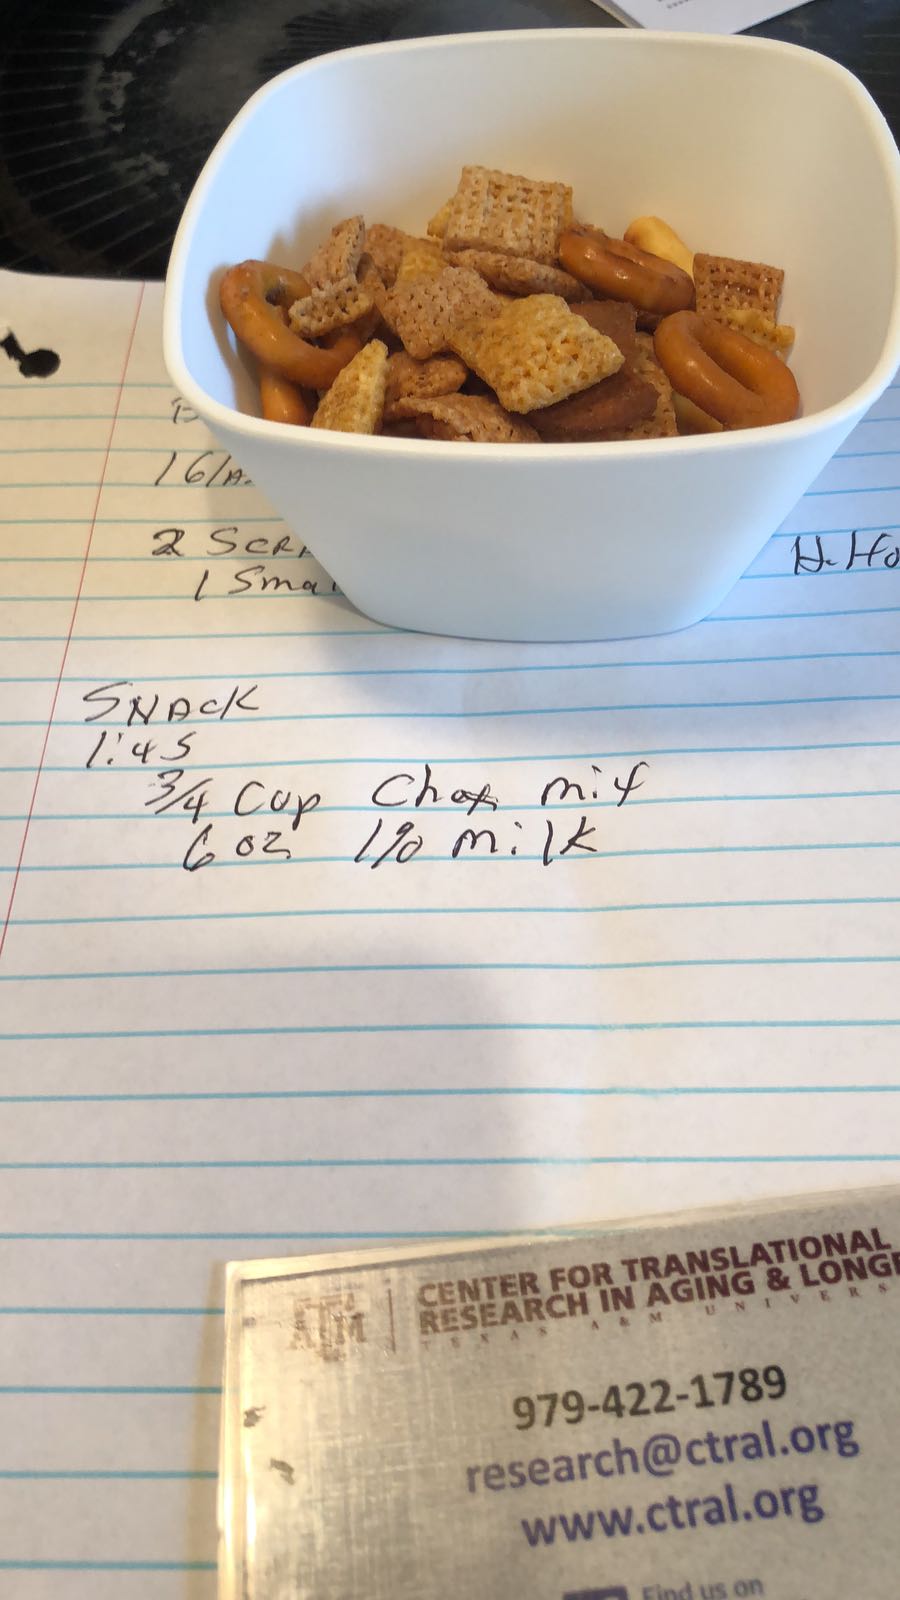 2 
1 Small
SNACK
1:45
3/4 Cup Chex mix
6 oz 1% milk
ATM
CENTER FOR TRANSLATIONAL
RESEARCH IN AGING &
TEXAS A&M
979-422-1789
research@ctral.org
www.ctral.org
Find us on